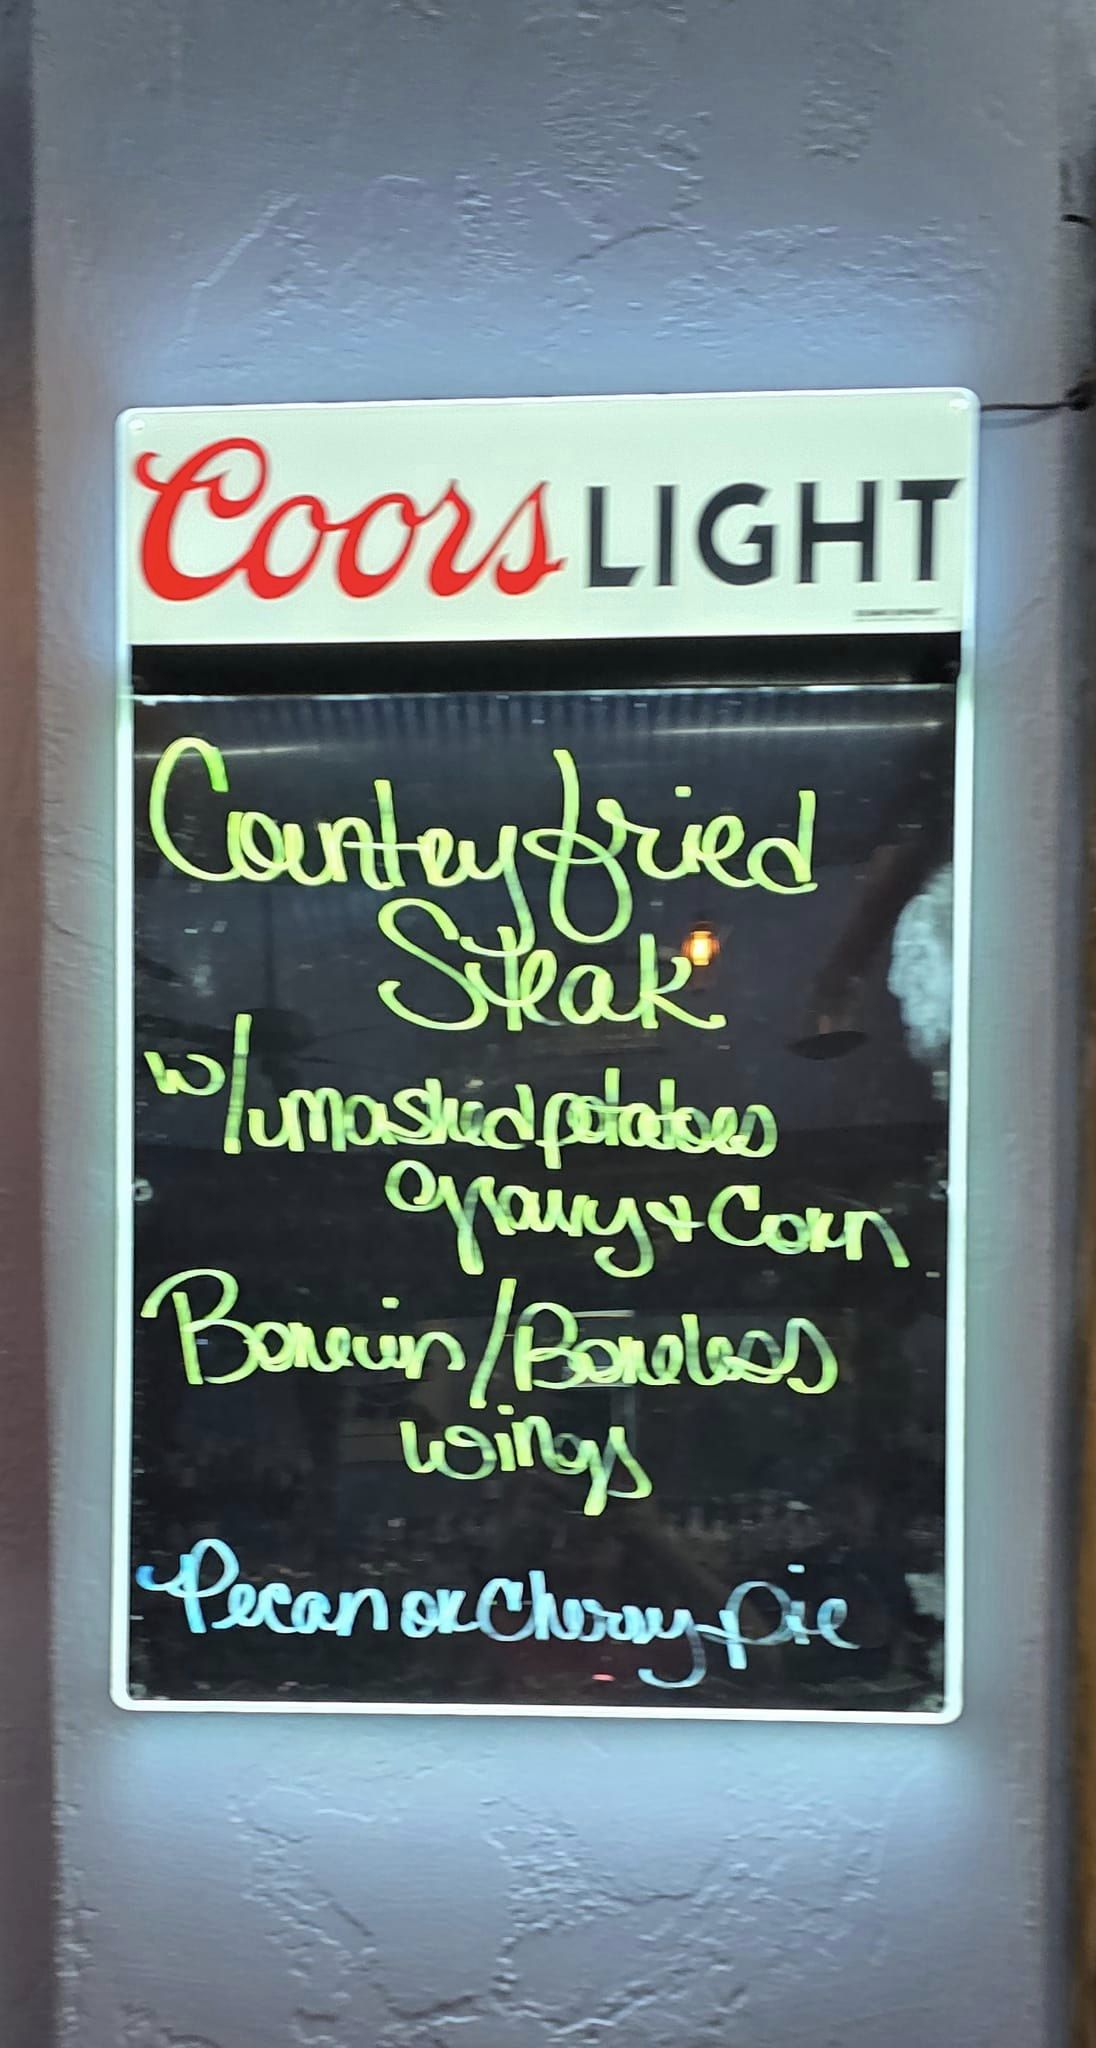 Coors LIGHT
Country fried
Steak
w/ mashed potatoes
gravy + Corn
Bone in / Boneless
wings
Pecan or Cherry pie